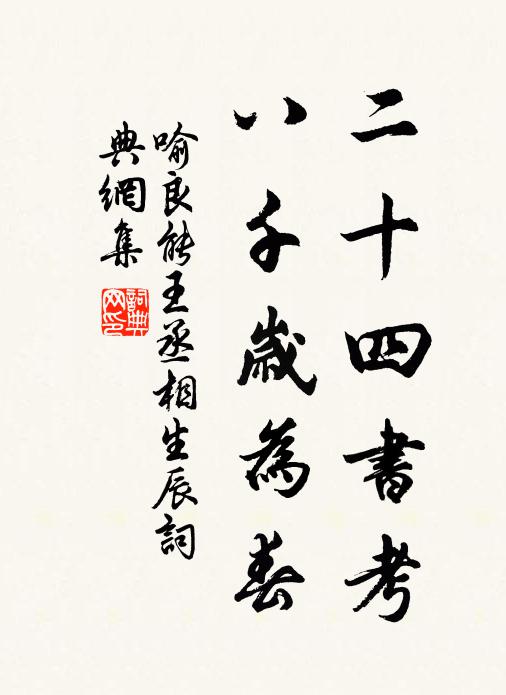 二十四書考
八千歲為春
喻良能王丞相生辰詞
典網集
詞典網印